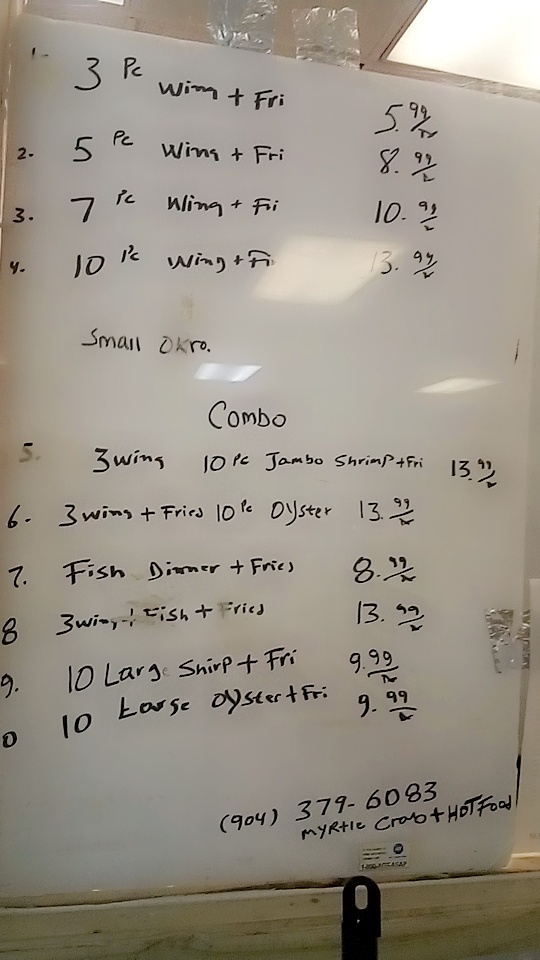 1- 3 Pc Wing + Fri 5.99
2. 5 Pc Wing + Fri 8.99
3. 7 Pc Wing + Fri 10.99
4. 10 Pc Wing + Fri 13.99
Small Okro.
Combo
5. 3wing 10 Pc Jambo Shrimp + Fri 13.99
6. 3wing + Fries 10 Pc Oyster 13.99
7. Fish Dinner + Fries 8.99
8 3wing + Fish + Fries 13.99
9. 10 Large Shirp + Fri 9.99
0 10 Large Oyster + Fri 9.99
(904) 379-6083
Myrtle Crab + HOT Food